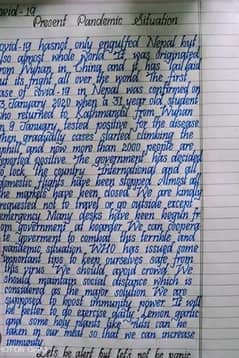 Covid-19
Present Pandemic Situation
Covid-19 hasnot only engulfed Nepal but
also almost whole World. It was originated
from Wuhan, in China, and it has layed
out its fright all over the world. The first
case of covid-19 in Nepal was confirmed on
23 January 2020 when a 31 year old student
who returned to Kathmandu from Wuhan
on 9 January, tested positive for the disease.
Then, gradually cases started climbing the
and now more than 2000 people are
reported positive. The government has decided
to lock the country. International and all
domestic flights have been stopped. Almost all
the markets have been closed. We are kindly
requested not to travel or go outside except
emergency. Many desks have been begun fr
om government at boarder. We can coopera
te goverment to combat this terrible and
pandemic situation. WHO has issued some
important tips to keep ourselves safe from
this virus. We should avoid crowd. We
should maintain social distance which is
considered as the major solution. We are
supposed to boost immunity power. It will
be better to do exercise daily. Lemon, garlic
and some holy plants like tulsi can be
taken in our meal so that we can increase
immunity.
Let's be alert but let's not be panic